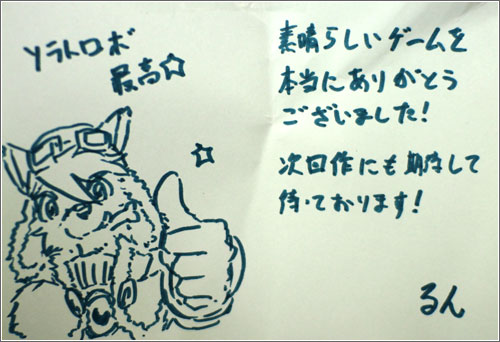 ソラトロボ
最高☆
素晴らしいゲームを
本当にありがとう
ございました!
次回作にも期待して
待っております!
るん